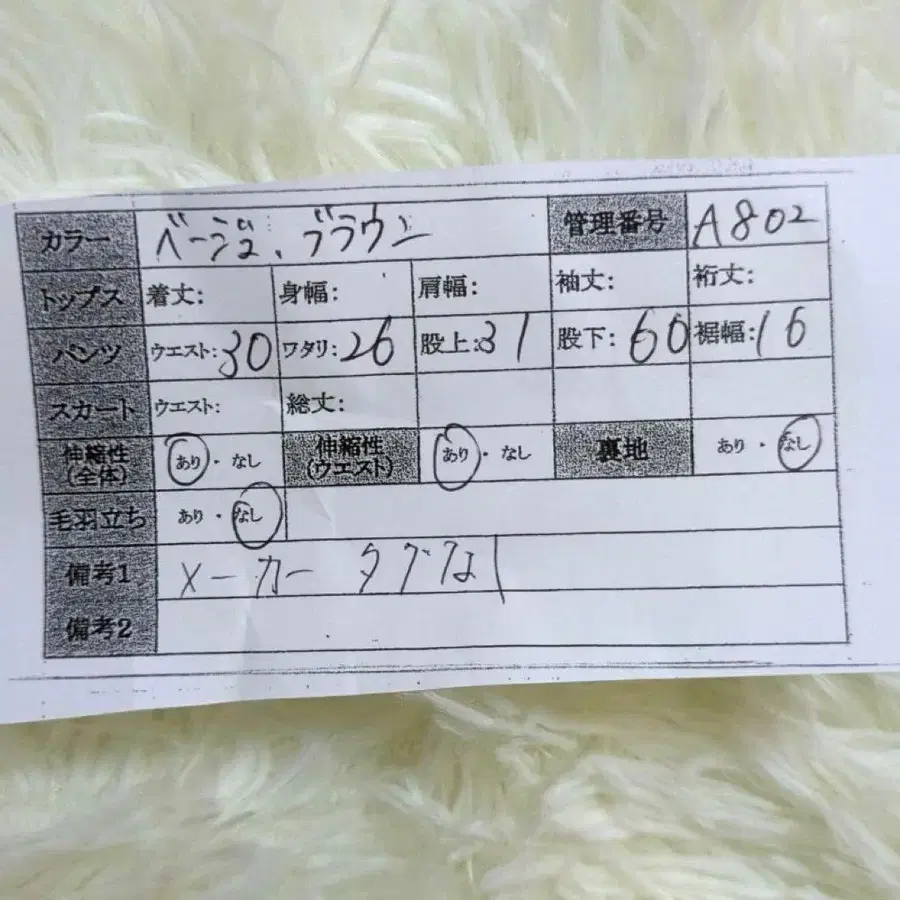 カラー ベージュ、ブラウン 管理番号 A802
トップス 着丈: 身幅: 肩幅: 袖丈: 裄丈:
パンツ ウエスト:30 ワタリ:26 股上:31 股下:60 裾幅:16
スカート ウエスト: 総丈:
伸縮性(全体) あり・なし 伸縮性(ウエスト) あり・なし 裏地 あり・なし
毛羽立ち あり・なし
備考1 メーカータグなし
備考2